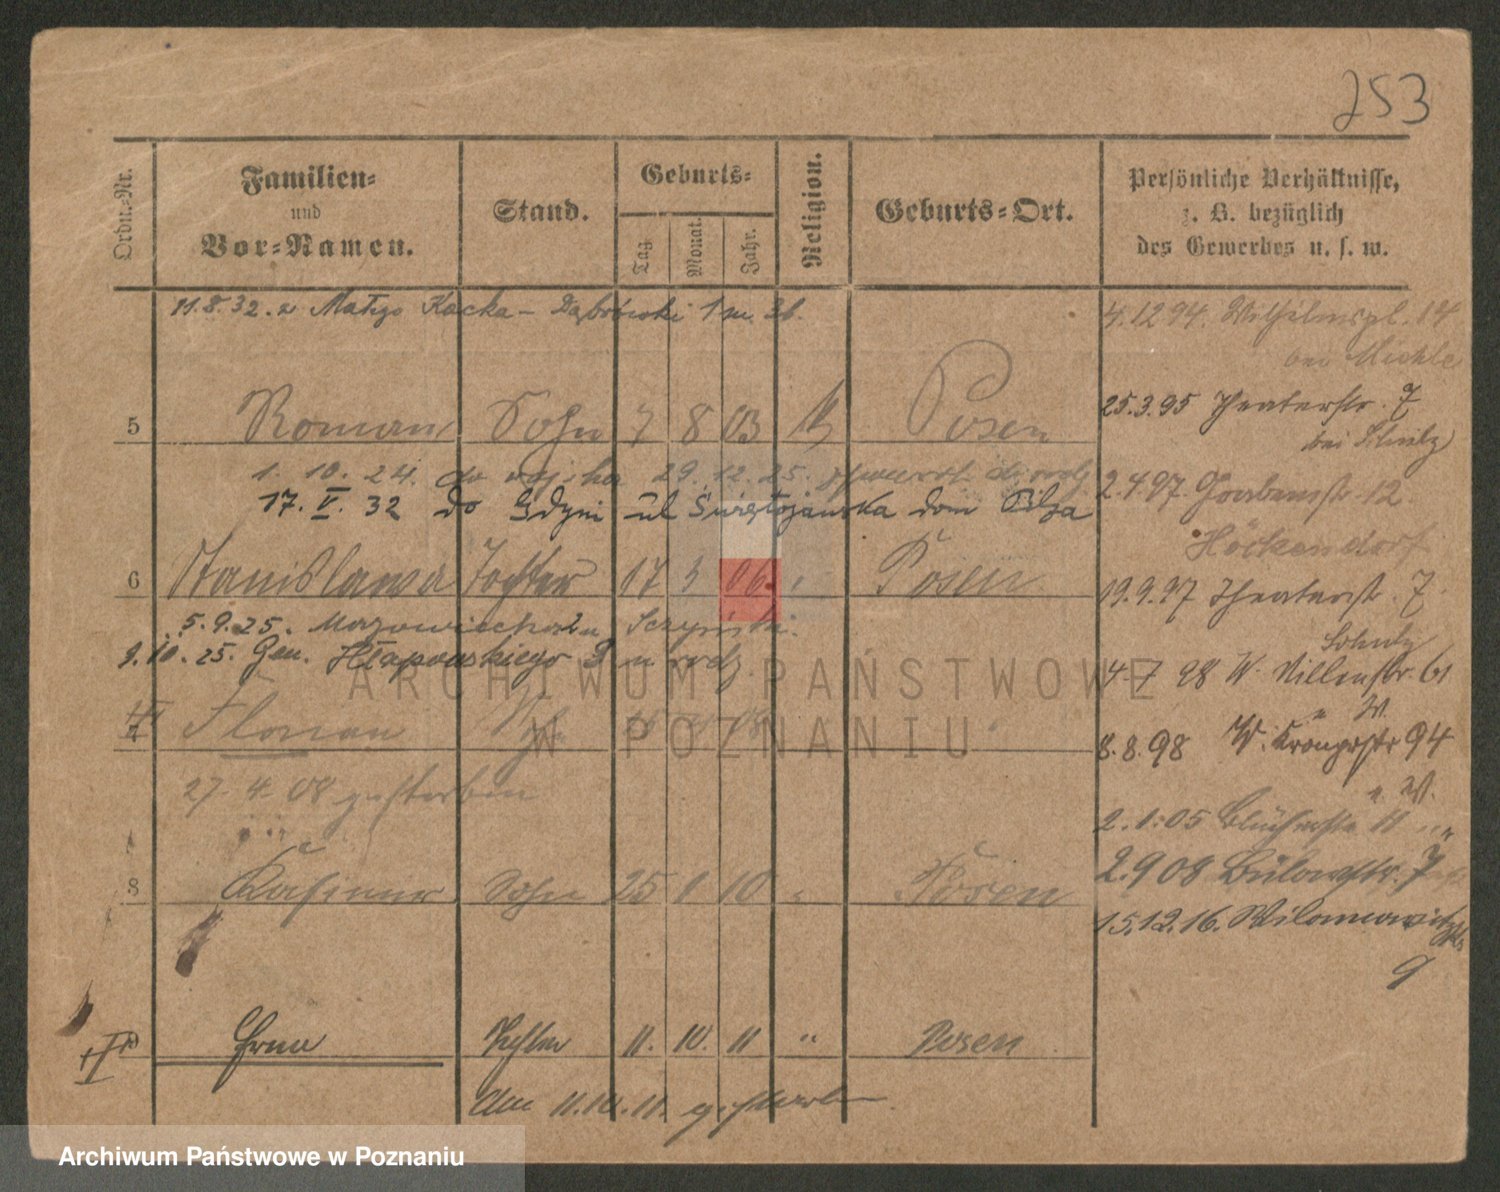 253
Ordn.-Nr.
Familien-
und
Vor-Namen.
Stand.
Geburts-
Tag.
Monat.
Jahr.
Religion.
Geburts-Ort.
Persönliche Verhältnisse,
z. B. bezüglich
des Gewerbes u. s. w.
11.8.32. z Małgo Kacka - Dąbrówki 1 m. 36.
5 Roman Sohn 7 8 03 Posen
1. 10. 24. do wojska 29.12.25. powrót do rodz
17. V. 32 do Gdyni ul Świętojańska dom
6 Stanislawa Tochter 17 3 06 Posen
5.9.25. Mazowiecka
9.10.25. Gen. Chłapowskiego u rodz.
7 Florian Sohn
27. 4. 08 gestorben
8 Kasimir Sohn 25 1 10 " Posen
Erna Tochter 11. 10. 11 " Posen
Am 11.10.11. gestorben
4.12 94. Wilhelmspl. 14
bei
25.3.95 Theaterstr. 7
bei Schulz
2.4.97. Grabenstr. 12
Höckendorf
19.9.97 Theaterstr. 7
Schulz
4.7 98 W. Villenstr. 61
" W.
8.8.98 W. Kronprstr 94
" W.
2.1.05 Blücherstr 11 "
2.9 08 Bülowstr. 7
15.12.16. Wilamowitzstr.
9
ARCHIWUM PAŃSTWOWE
W POZNANIU
Archiwum Państwowe w Poznaniu